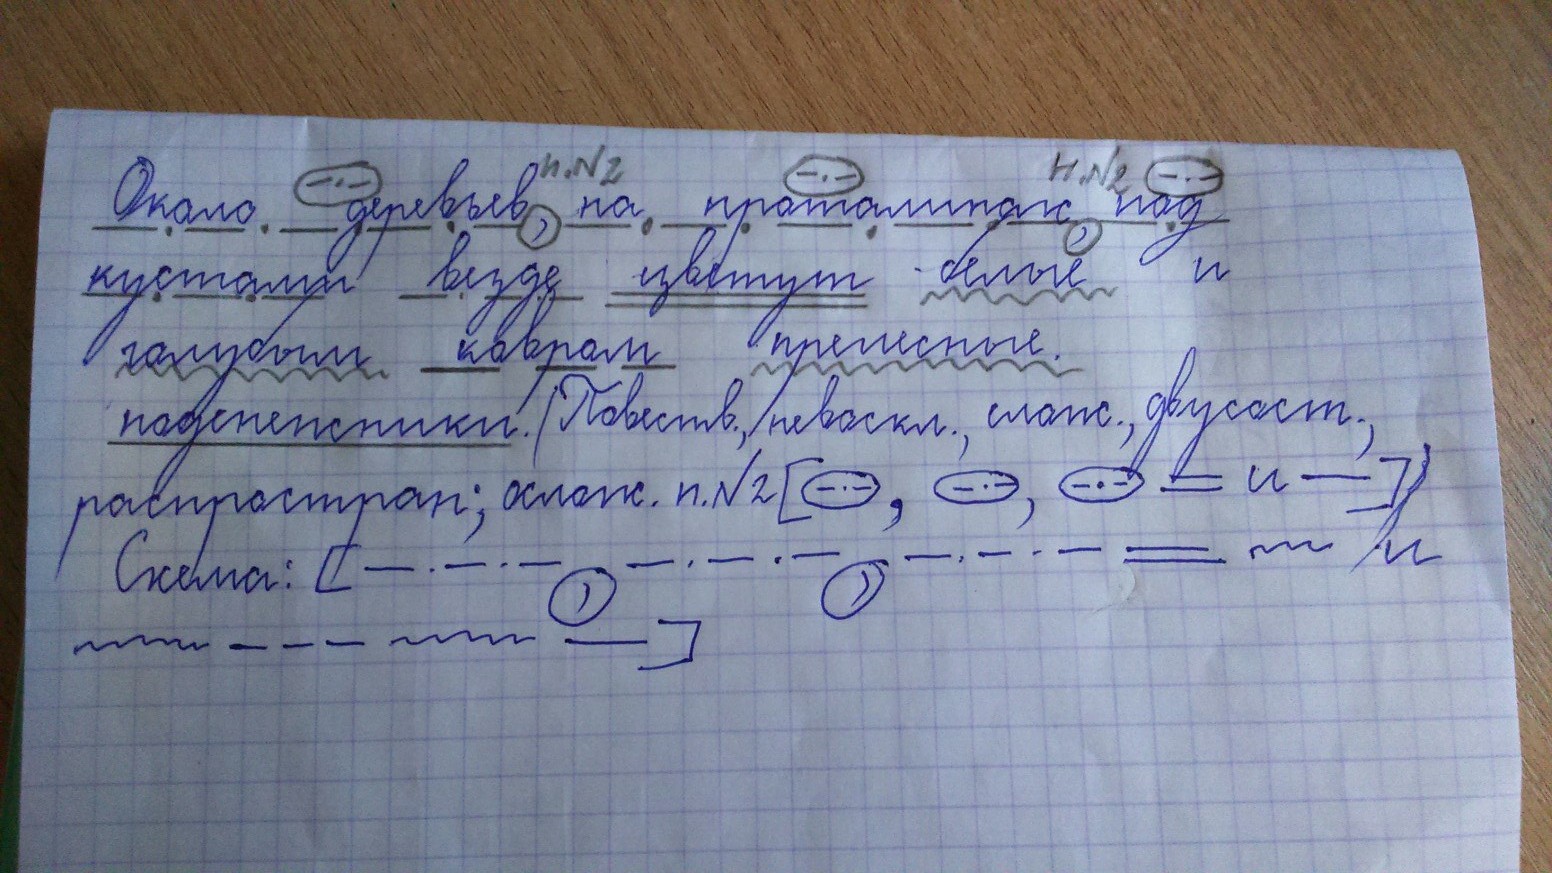 п.№2 п.№2
Около деревьев, на проталинах, под
кустами везде цветут белые и
голубым ковром прелесные.
подснежники. (Повеств., невоскл., слож., двусост.,
распростран; ослож. п.№2 [ , , и ])
Схема: [ , , и
]